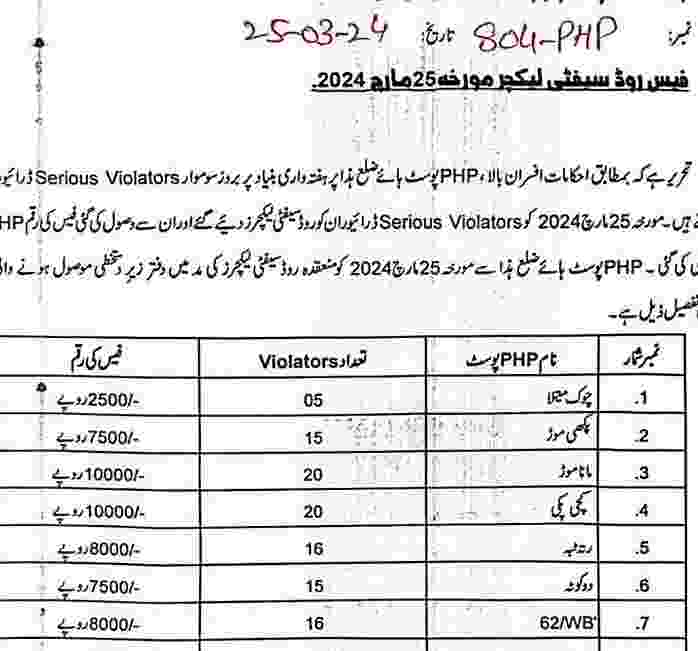 نمبر: 804-PHP تاریخ: 25-03-24
فیس روڈ سیفٹی لیکچر مورخہ 25 مارچ 2024.
تحریر ہے کہ بمطابق احکامات افسران بالا، PHP پوسٹ ہائے ضلع ہذا پر ہفتہ واری بنیاد پر بروز سوموار Serious Violators
ہیں۔ مورخہ 25 مارچ 2024 کو Serious Violators ڈرائیوران کو روڈ سیفٹی لیکچرز دیئے گئے اور ان سے وصول کی گئی فیس کی رقم
کی گئی ۔ PHP پوسٹ ہائے ضلع ہذا سے مورخہ 25 مارچ 2024 کو منعقدہ روڈ سیفٹی لیکچرز کی مد میں دفتر زیر دستخطی موصول ہونے
تفصیل ذیل ہے۔
نمبر شمار نام PHP پوسٹ تعداد Violators فیس کی رقم
1. چوک میتلا 05 2500/- روپے
2. پکھی موڑ 15 7500/- روپے
3. مانا موڑ 20 10000/- روپے
4. کچی پکی 20 10000/- روپے
5. 16 8000/- روپے
6. دوکوٹہ 15 7500/- روپے
7. 62/WB 16 8000/- روپے